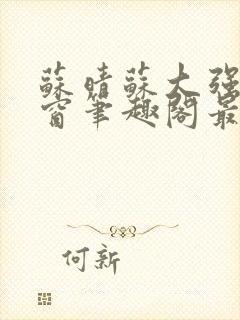 蘇晴蘇大强
窗筆趣閣最
何新